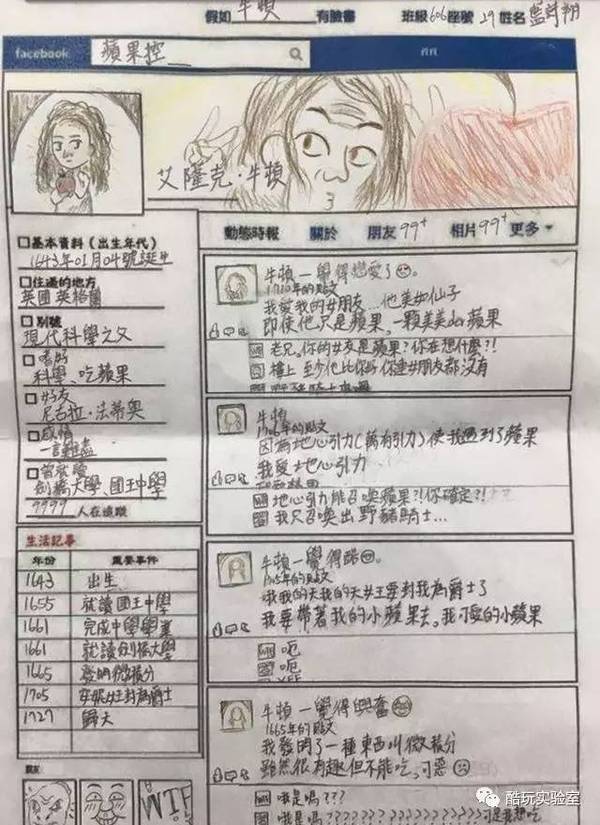 假如 牛頓 有臉書 班級606座號29姓名
facebook 蘋果控
艾薩克·牛頓
動態時報 關於 朋友99+ 相片99+ 更多
基本資料(出生年代)
1643年01月04號誕生
住過的地方
英國 英格蘭
別號
現代科學之父
嗜好
科學、吃蘋果
好友
尼古拉·法蒂奧
感情
一言難盡
曾就讀
劍橋大學、國王中學
9999 人在追蹤
生活記事
年份 重要事件
1643 出生
1655 就讀國王中學
1661 完成中學學業
1661 就讀劍橋大學
1665 發明微積分
1705 安妮女王封為爵士
1727 歸天
牛頓一覺得戀愛了
1710年的貼文
我愛我的女朋友...他美如仙子
即使他只是蘋果,一顆美美der蘋果
老兄,你的女友是蘋果?你在想什麼?!
樓上 至少他比你好 你連女朋友都沒有
牛頓
因為地心引力(萬有引力)使我遇到了蘋果
我愛地心引力
地心引力能召喚蘋果?!你確定?!
我只召喚出野豬騎士...
牛頓一覺得酷
1705年的貼文
哦我的天我的天女王要封我為爵士了
我要帶著我的小蘋果去。我可愛的小蘋果
呃
呃
牛頓一覺得興奮
1665年的貼文
我發明了一種東西叫微積分
雖然很有趣但不能吃,可惡
哦是嗎???
哦是嗎????????????可是我想吃
WTF
酷玩实验室